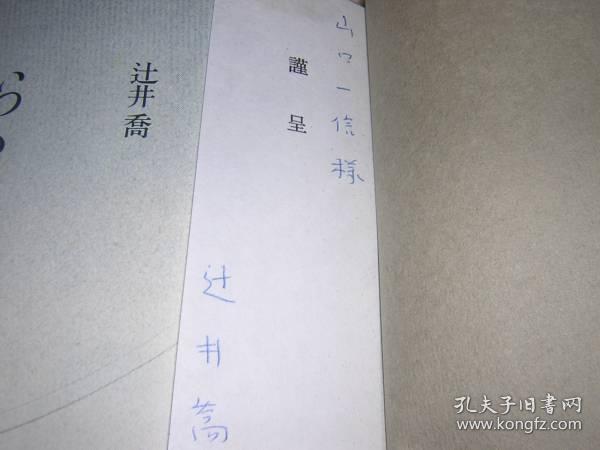 山口一信様
謹呈
辻井喬
辻井喬
孔夫子旧书网
www.kongfz.com